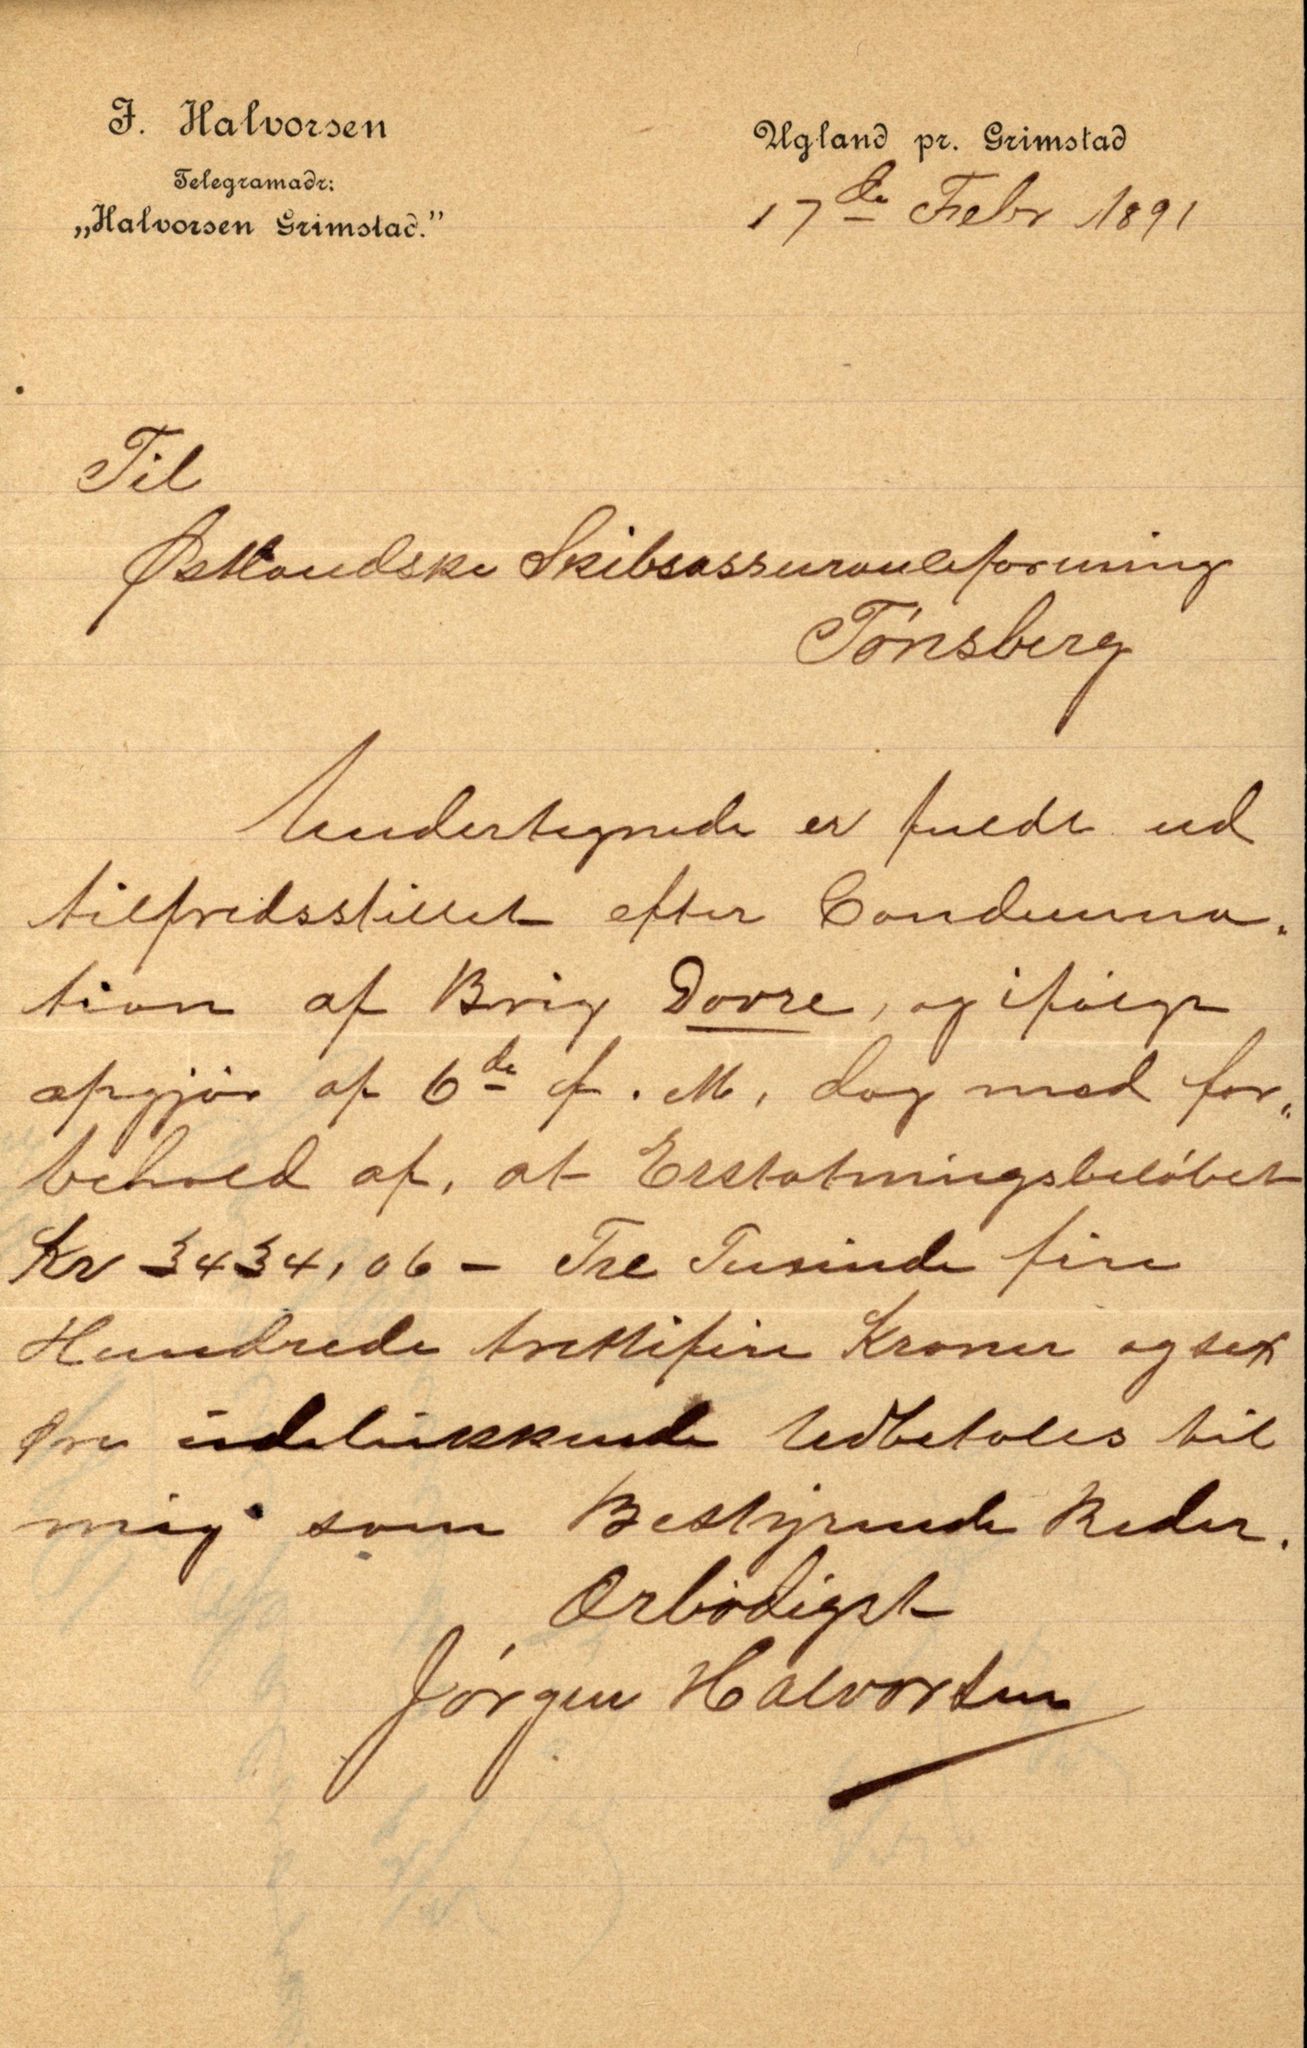 J. Halvorsen
Telegramadr:
„Halvorsen Grimstad.”
Ugland pr. Grimstad
17de Febr 1891
Til
Østlandske Skibsassuranceforening
Tønsberg
Undertegnede er fuldt ud
tilfredsstillet efter Condemna„
tion af Brig Dovre, og ifølge
opgjør af 6de f. M, dog med for„
behold af, at Erstatningsbeløbet
Kr 3434,06 – Tre Tusinde fire
Hundrede trettifire Kroner og sex
Øre udelukkende Udbetales til
mig som Bestyrende Reder.
Ærbødigst
Jørgen Halvorsen